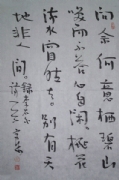 问余何意栖碧山
笑而不答心自闲桃花
流水窅然去别有天
地非人间